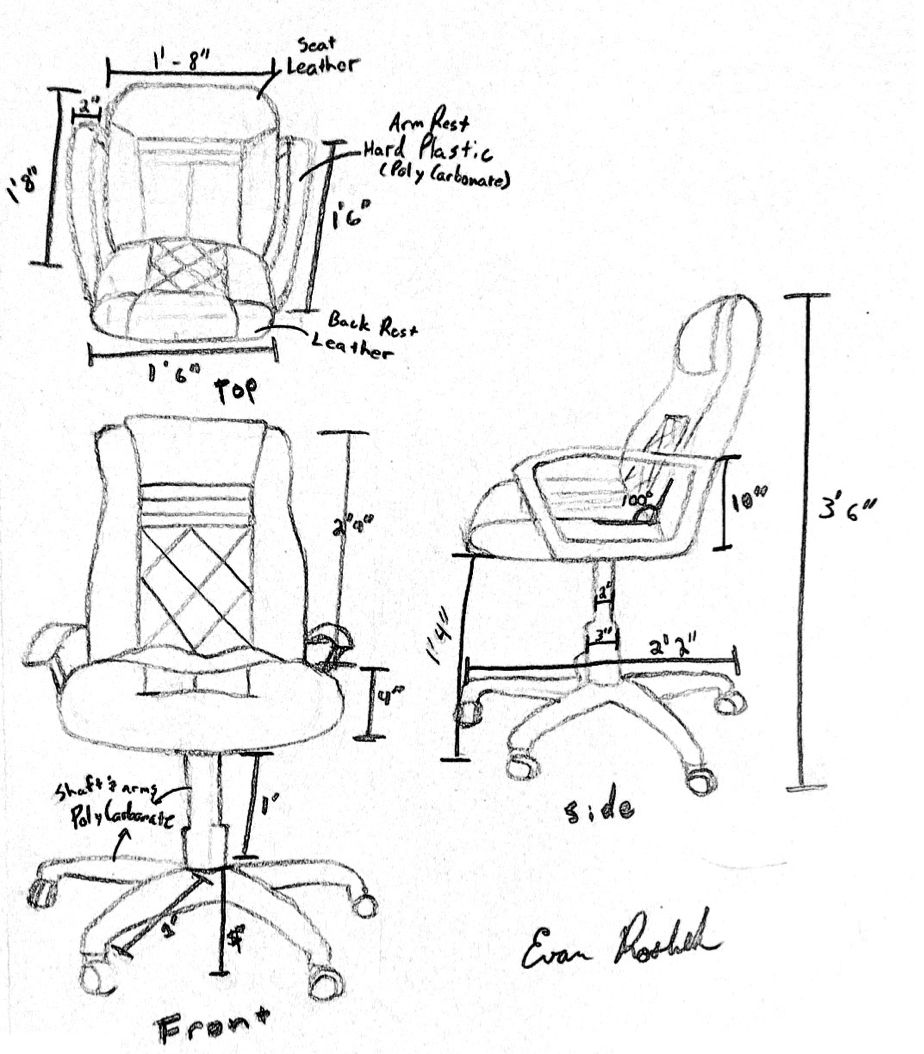 1' - 8"
Seat
Leather
2"
1'8"
Arm Rest
Hard Plastic
(Poly Carbonate)
1'6"
Back Rest
Leather
1'6"
Top
4"
1'
Shaft & arms
PolyCarbonate
Front
100°
10"
3'6"
1'4"
2"
3"
2'2"
Side
Evan